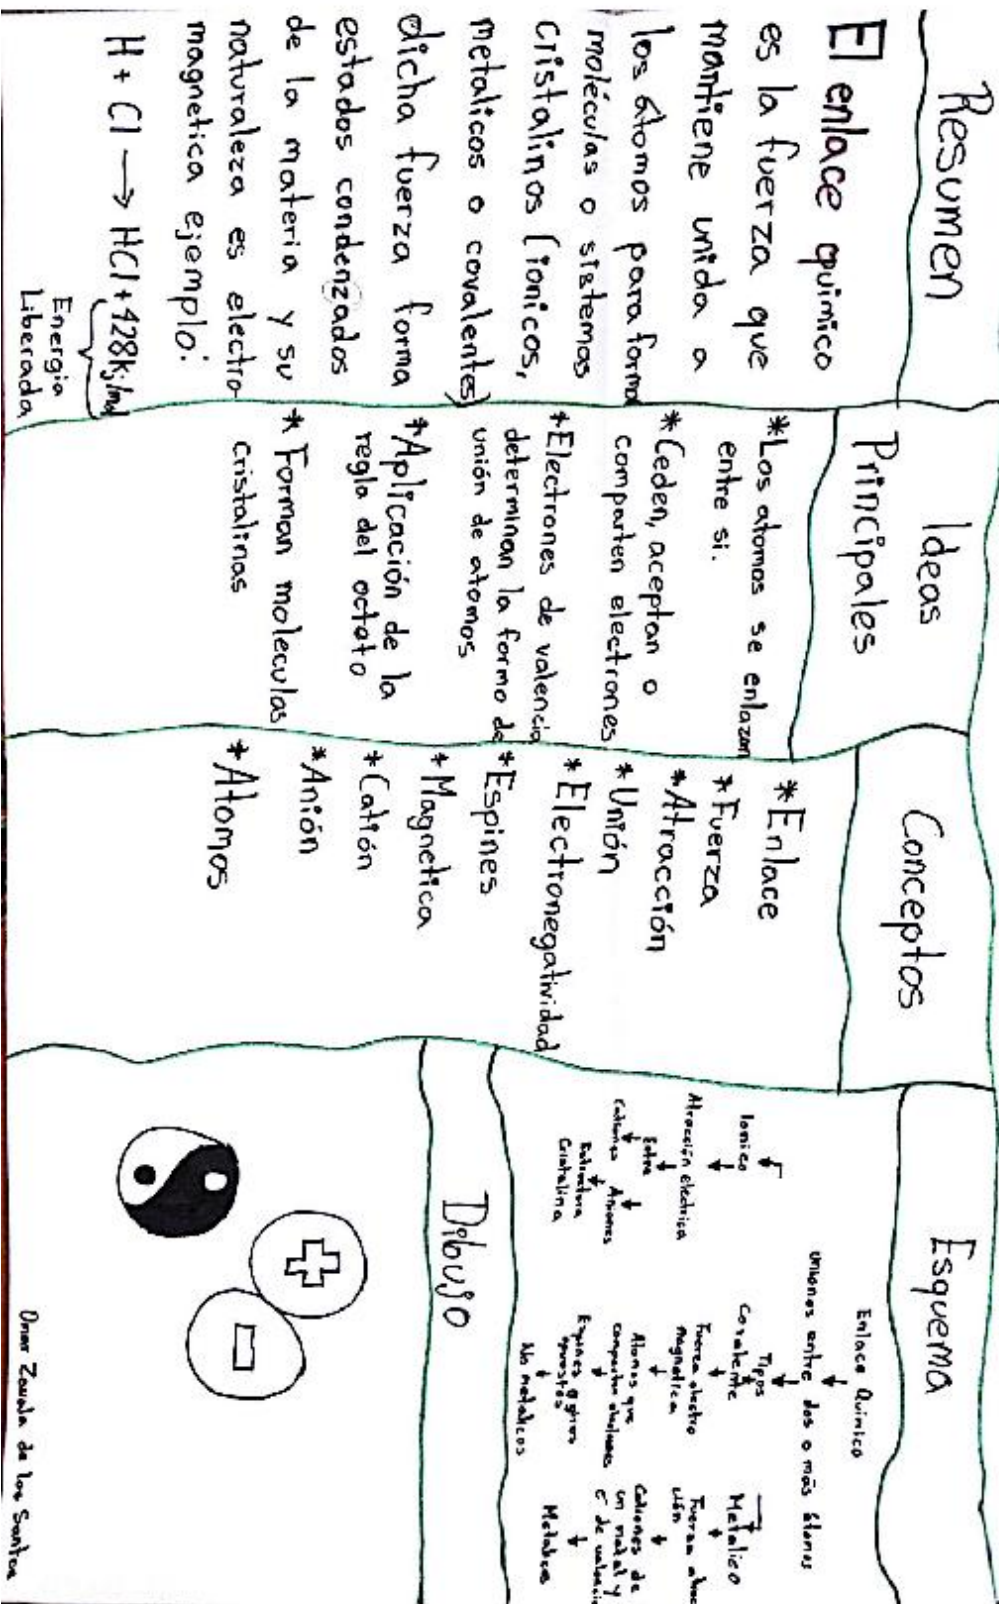 Resumen
El enlace quimico
es la fuerza que
mantiene unida a
los átomos para forma
moléculas o sistemas
cristalinos (ionicos,
metalicos o covalentes)
dicha fuerza forma
estados condenzados
de la materia y su
naturaleza es electro-
magnetica ejemplo:
H + Cl → HCl + 428kj/mol
Energia
Liberada
Ideas
Principales
*Los atomos se enlazan
entre si.
*Ceden, aceptan o
comparten electrones
*Electrones de valencia
determinan la forma de
unión de atomos
*Aplicación de la
regla del octeto
* Forman moleculas
cristalinas
Conceptos
*Enlace
*Fuerza
*Atracción
*Unión
*Electronegatividad
*Espines
*Magnetica
*Catión
*Anión
*Atomos
Esquema
Enlace Quimico
Uniones entre dos o más átomos
Tipos
Ionico
Atracción electrica
Entre
Cationes Aniones
Estructura
Cristalina
Covalente
Fuerza electro
magnetica
Atomos que
comparten electrones
Espines o giros
opuestos
No metalicos
Metalico
Fuerza atrac
ción
Cationes de
un metal y
e⁻ de valencia
Metalicos
Dibujo
+
-
Omar Zavala de los Santos